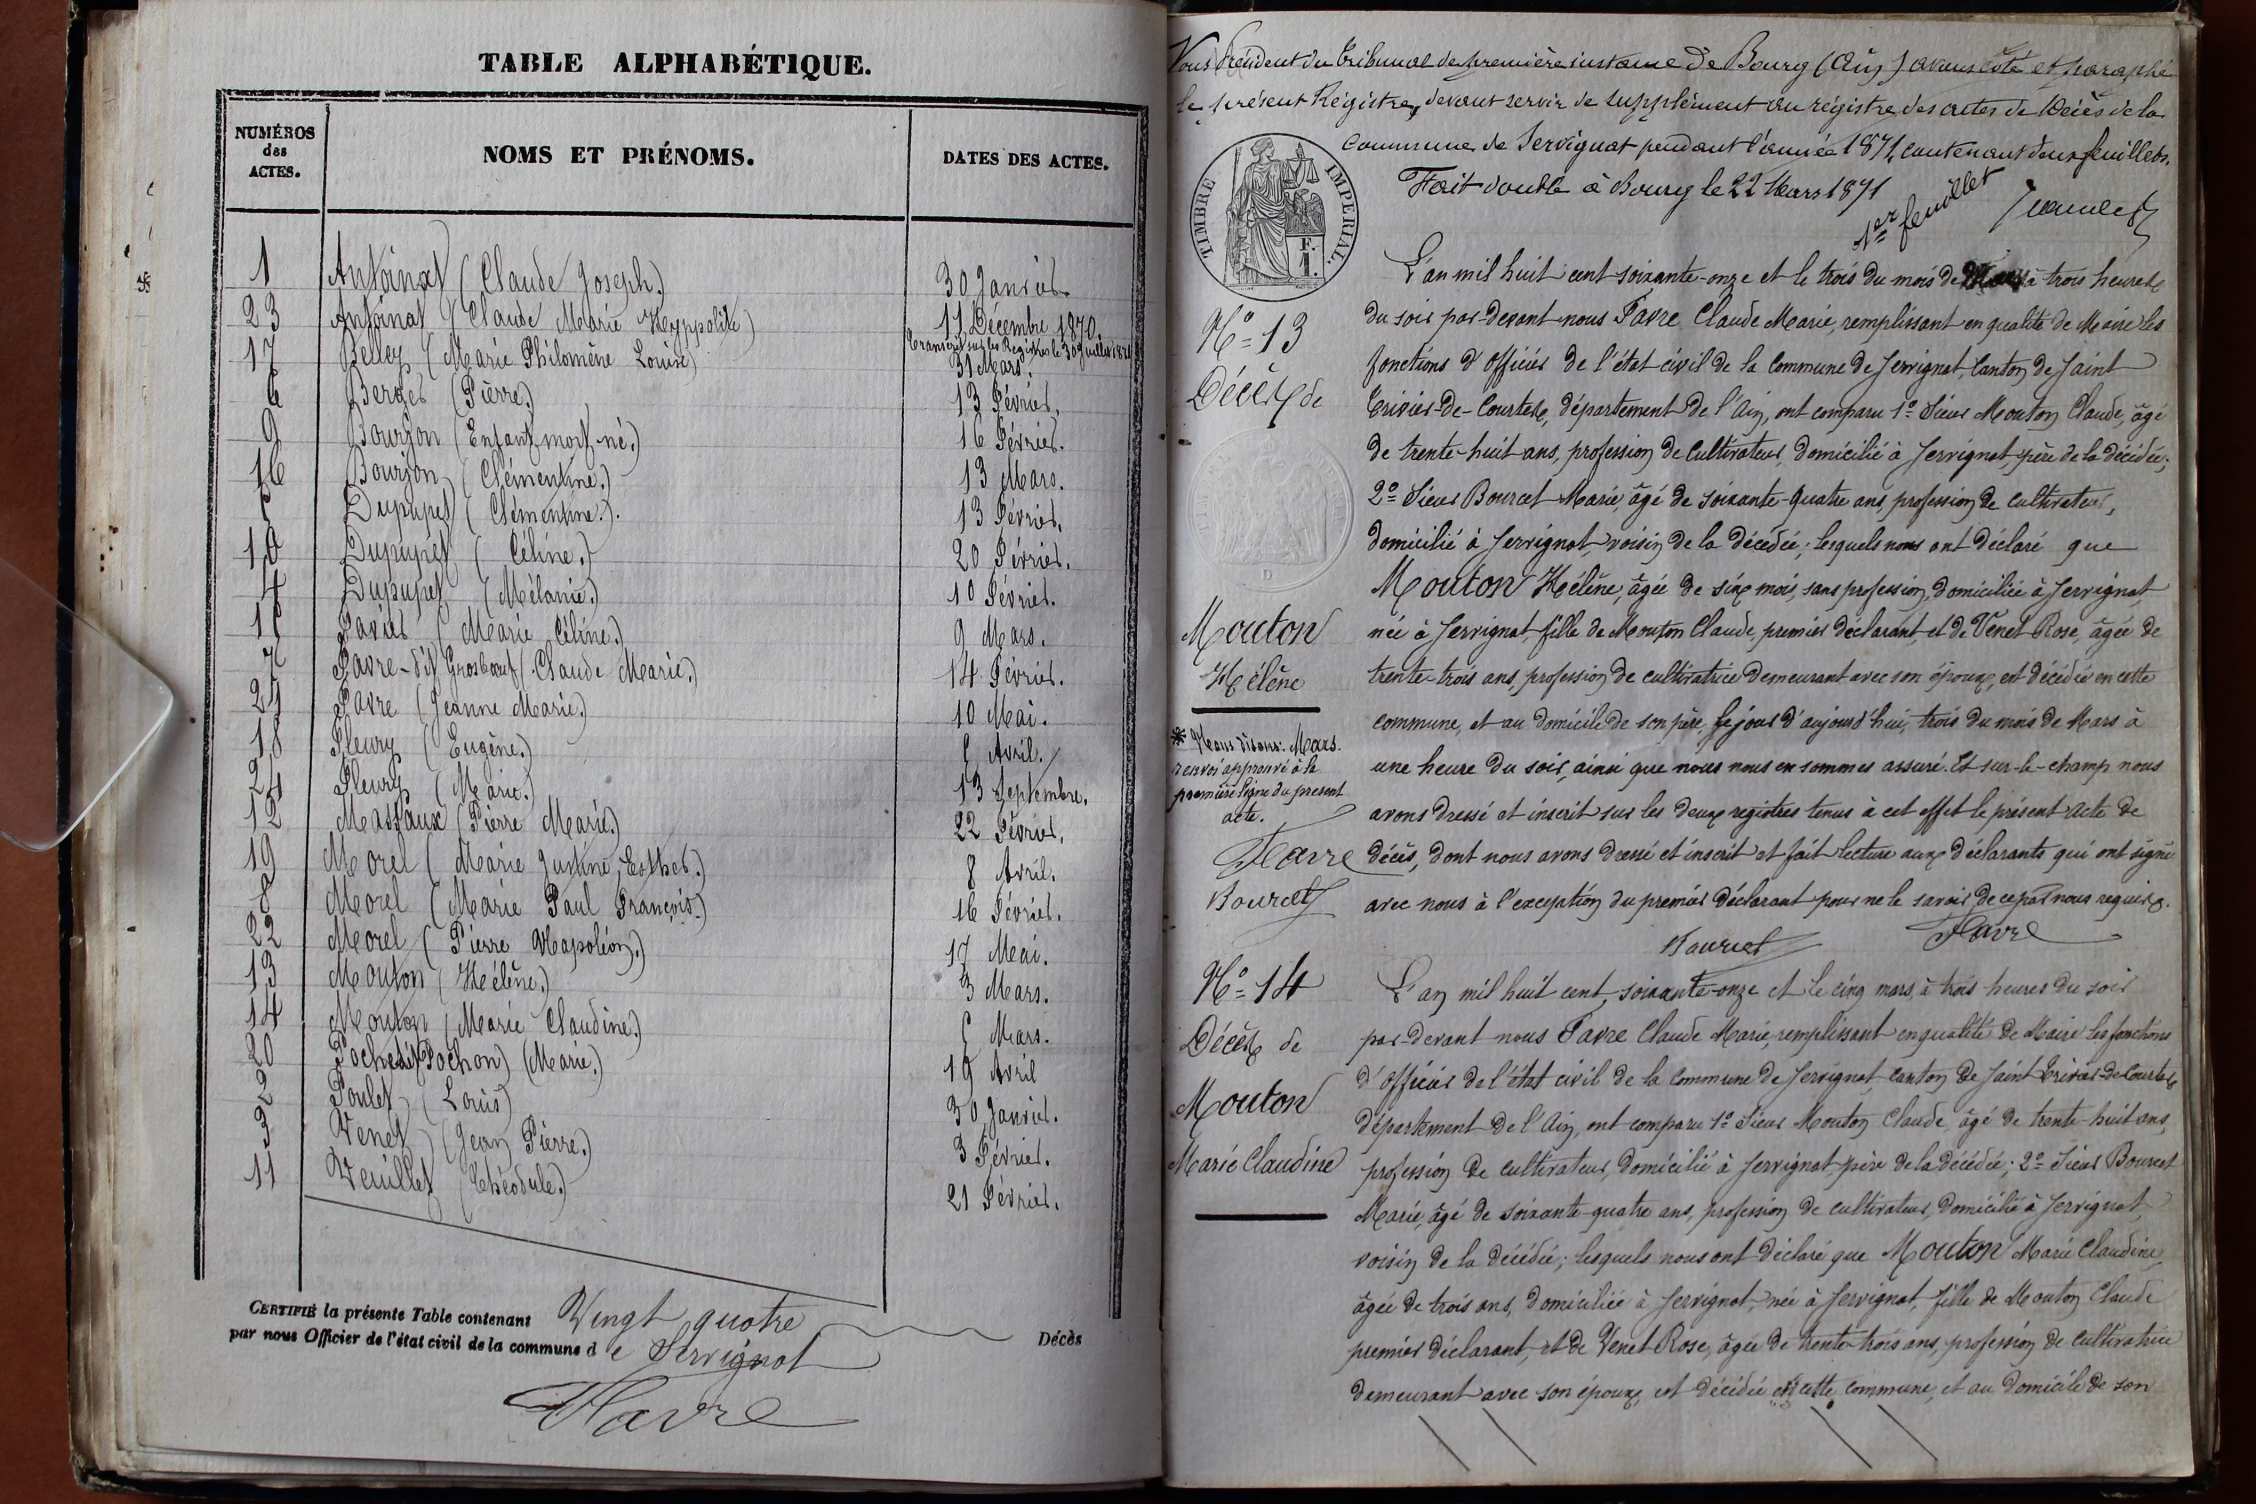 TABLE ALPHABÉTIQUE.
NUMÉROS des ACTES.
NOMS ET PRÉNOMS.
DATES DES ACTES.
1 Antoinat (Claude Joseph.) 30 Janvier.
23 Antoinat (Claude Marie Hyppolite) 11 Décembre 1870.
Transcrit sur les Registres le 30 Juillet 1871
17 Belley (Marie Philomène Louise) 31 Mars.
6 Berger (Pierre.) 13 Février.
9 Bourjon (Enfant mort-né.) 16 Février.
16 Bourjon (Clémentine.) 13 Mars.
5 Dupupet (Clémentine.). 13 Février.
10 Dupupet (Céline.) 20 Février.
4 Dupupet (Mélanie.) 10 Février.
15 Favier (Marie Céline.) 9 Mars.
7 Favre-dit Grosboeuf (Claude Marie.) 14 Février.
21 Favre (Jeanne Marie.) 10 Mai.
18 Fleury (Eugène.) 5 Avril.
24 Fleury (Marie.) 13 Septembre.
12 Massaux (Pierre Marie.) 22 Février.
19 Morel (Marie Justine, Esther.) 8 Avril.
8 Morel (Marie Paul François.) 16 Février.
22 Morel (Pierre Napoléon.) 17 Mai.
13 Mouton (Hélène.) 3 Mars.
14 Mouton (Marie Claudine.) 5 Mars.
20 (Pochon) (Marie.) 19 Avril
2 Poulet (Louis) 30 Janvier.
3 Venet (Jean Pierre.) 3 Février.
11 Veuillet (Théodule.) 21 Février.
CERTIFIÉ la présente Table contenant Vingt quatre Décès
par nous Officier de l'état civil de la commune de Servignat
Favre
Nous Président du Tribunal de première instance de Bourg (Ain) avons côté et paraphé
le présent Régistre, devant servir de supplément au régistre des actes de Décès de la
commune de Servignat pendant l'année 1871, contenant deux feuillets.
Fait double à Bourg le 22 Mars 1871
1er feuillet
TIMBRE IMPERIAL.
F. 1.
L'an mil huit cent soixante-onze et le trois du mois de à trois heures
du soir par-devant nous Favre Claude Marie, remplissant en qualité de Maire les
fonctions d'officier de l'état civil de la commune de Servignat, Canton de Saint
Trivier-de-Courtes, département de l'Ain, ont comparu 1° Sieur Mouton Claude, âgé
de trente-huit ans, profession de cultivateur, domicilié à Servignat, père de la décédée;
2° Sieur Bourcet Marie, âgé de soixante-quatre ans, profession de cultivateur,
domicilié à Servignat, voisin de la décédée; lesquels nous ont déclaré que
Mouton Hélène, âgée de six mois, sans profession, domiciliée à Servignat,
née à Servignat, fille de Mouton Claude, premier déclarant, et de Venet Rose, âgée de
trente-trois ans, profession de cultivatrice demeurant avec son époux, est décédée en cette
commune, et au domicile de son père, le jour d'aujourd'hui, trois du mois de Mars à
une heure du soir, ainsi que nous nous en sommes assuré. Et sur-le-champ nous
avons dressé et inscrit sur les deux registres tenus à cet effet le présent acte de
décès, dont nous avons dressé et inscrit et fait lecture aux déclarants qui ont signé
avec nous à l'exception du premier déclarant pour ne le savoir de ce par nous requis.
Bourcet Favre
N° 13
Décès de
Mouton
Hélène
* Nous disons: Mars.
renvoi approuvé à la
première ligne du present
acte.
Favre
Bourcet
N° 14
Décès de
Mouton
Marie Claudine
L'an mil huit cent soixante-onze et le cinq mars, à trois heures du soir
par-devant nous Favre Claude Marie, remplissant en qualité de Maire les fonctions
d'officier de l'état civil de la commune de Servignat, canton de Saint Trivier-de-Courtes
département de l'Ain, ont comparu 1° Sieur Mouton Claude, âgé de trente-huit ans,
profession de cultivateur, domicilié à Servignat père de la décédée; 2° Sieur Bourcet
Marie, âgé de soixante-quatre ans, profession de cultivateur, domicilié à Servignat,
voisin de la décédée; lesquels nous ont déclaré que Mouton Marie Claudine,
âgée de trois ans, domiciliée à Servignat, née à Servignat, fille de Mouton Claude
premier déclarant, et de Venet Rose, âgée de trente-trois ans, profession de cultivatrice
demeurant avec son époux, est décédée en cette commune, et au domicile de son